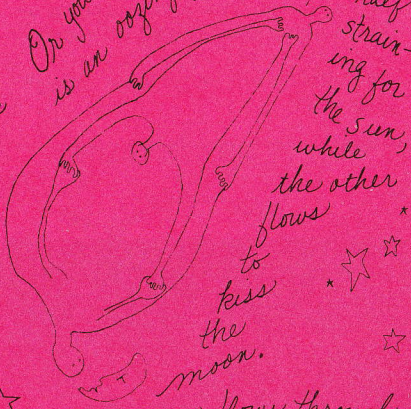 Or you
is an oozing
half
strain-
ing for
the sun,
while
the other
flows
to
kiss
the
moon.